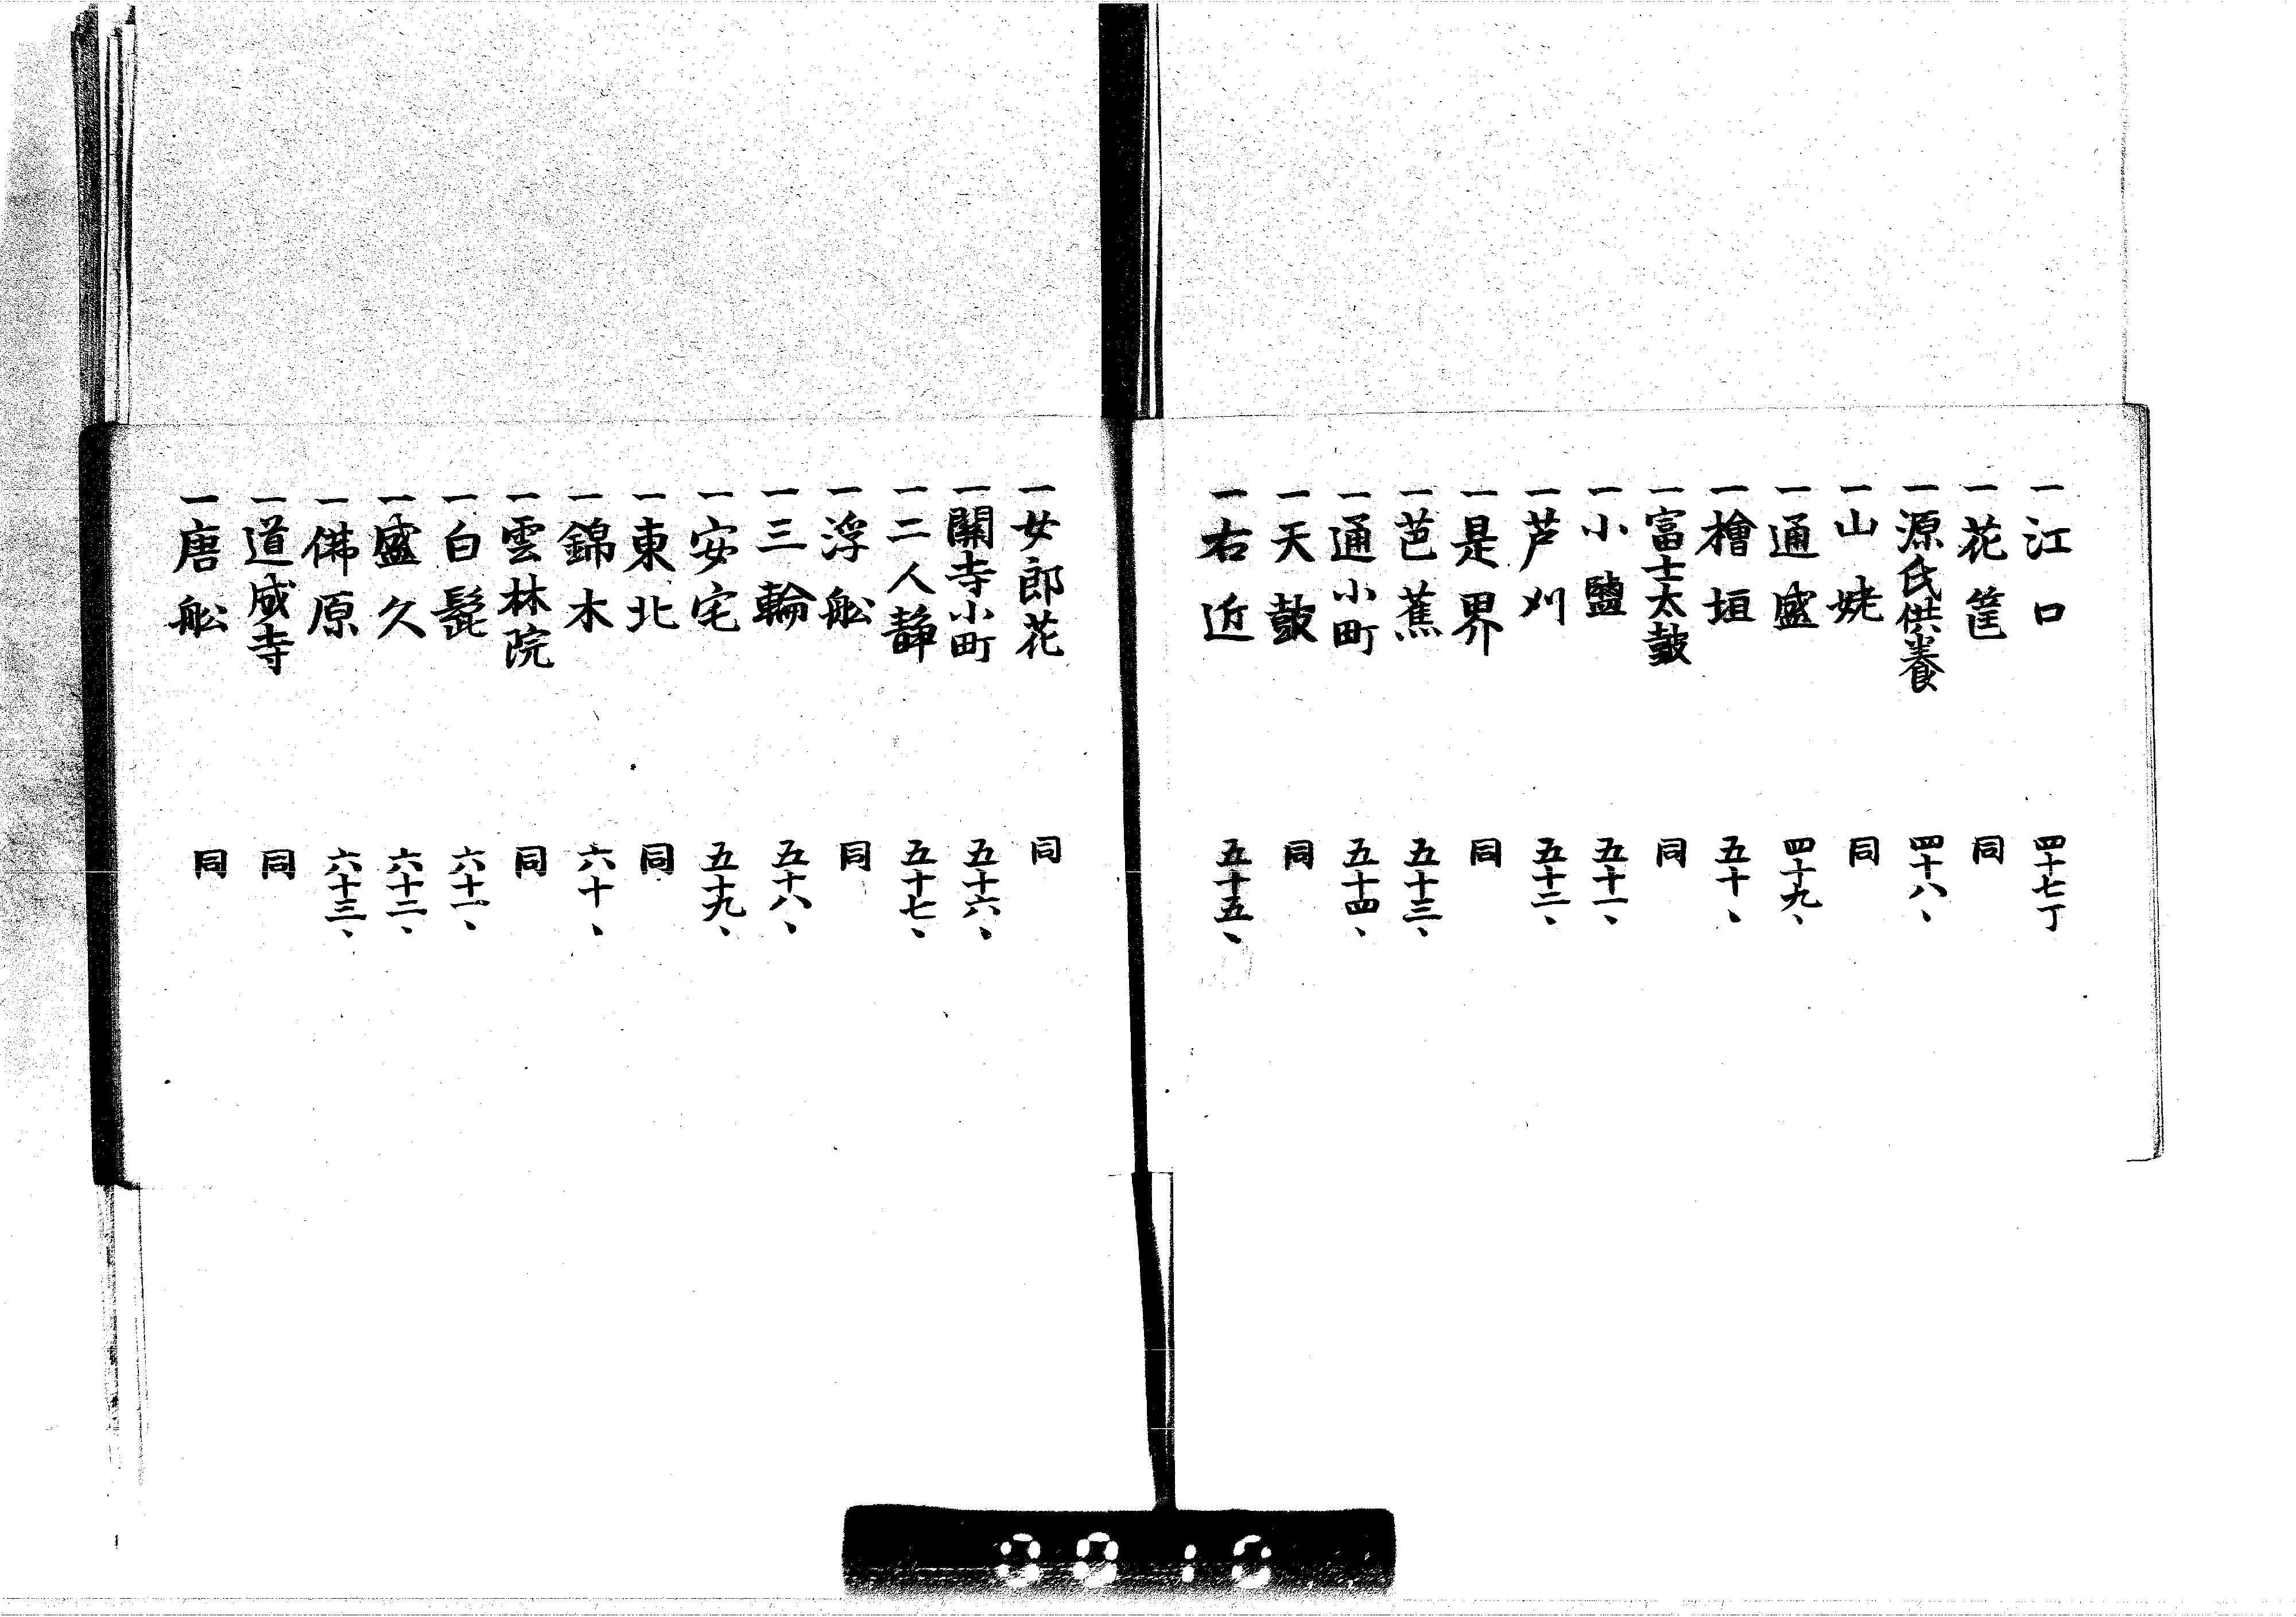 一江口　四十七丁
一花筐　同
一源氏供養　四十八、
一山姥　同
一通盛　四十九、
一檜垣　五十、
一富士太鼓　同
一小鹽　五十一、
一芦刈　五十二、
一是界　同
一芭蕉　五十三、
一通小町　五十四、
一天鼓　同
一右近　五十五、
一女郎花　同
一関寺小町　五十六、
一二人静　五十七、
一浮舩　同
一三輪　五十八、
一安宅　五十九、
一東北　同
一錦木　六十、
一雲林院　同
一白髭　六十一、
一盛久　六十二、
一佛原　六十三、
一道成寺　同
一唐舩　同